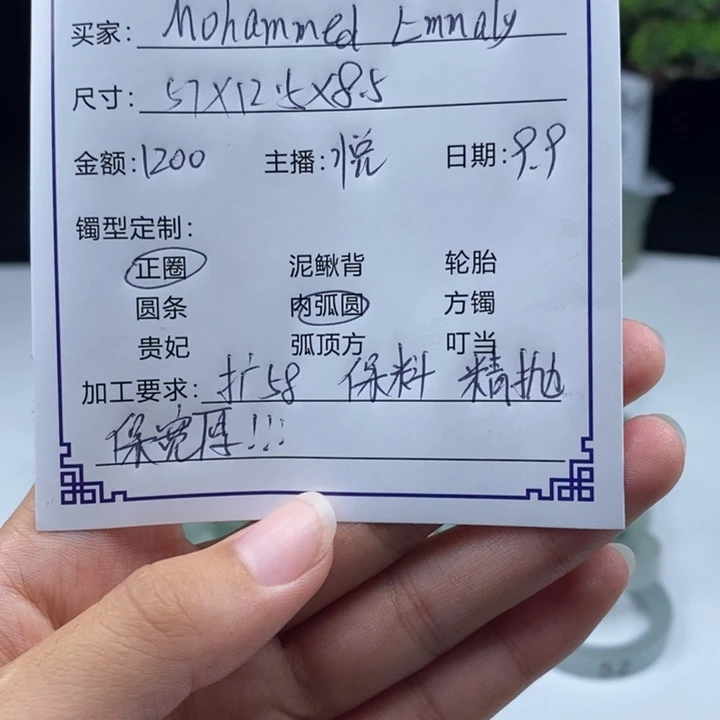 买家: Mohammed Emnaly
尺寸: 57X12.5X8.5
金额:1200 主播:悦 日期:9.9
镯型定制:
正圈 泥鳅背 轮胎
圆条 内弧圆 方镯
贵妃 弧顶方 叮当
加工要求: 扩58 保料 精抛
保宽厚!!!
52